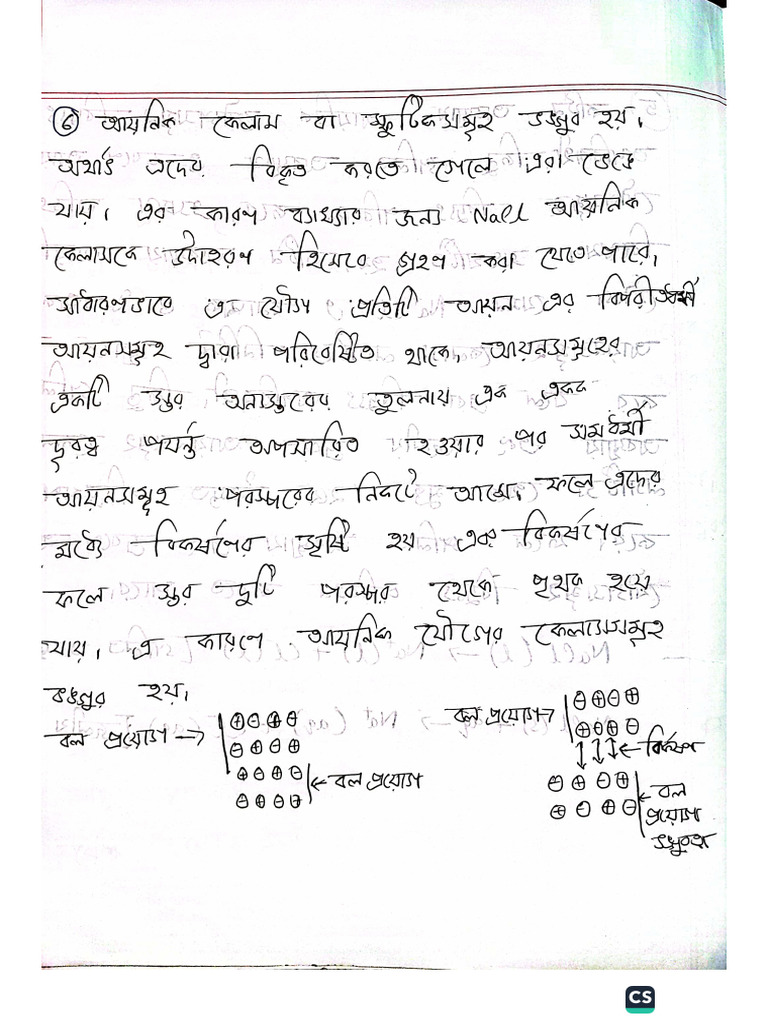 ৬ আয়নিক কেলাস বা স্ফটিকসমূহ ভঙ্গুর হয়।
অর্থাৎ এদের বিকৃত করতে গেলে এরা ভেঙে
যায়। এর কারণ ব্যাখ্যার জন্য NaCl আয়নিক
কেলাসকে উদাহরণ হিসেবে গ্রহণ করা যেতে পারে।
সাধারণভাবে এ যৌগে প্রতিটি আয়ন এর বিপরীতধর্মী
আয়নসমূহ দ্বারা পরিবেষ্টিত থাকে। আয়নসমূহের
একটি স্তর অন্যস্তরের তুলনায় এক একক
দূরত্ব পর্যন্ত অপসারিত হওয়ার পর সমধর্মী
আয়নসমূহ পরস্পরের নিকটে আসে। ফলে এদের
মধ্যে বিকর্ষণের সৃষ্টি হয় এবং বিকর্ষণের
ফলে স্তর দুটি পরস্পর থেকে পৃথক হয়ে
যায়। এ কারণে আয়নিক যৌগের কেলাসসমূহ
ভঙ্গুর হয়।
বল প্রয়োগ →
⊕ ⊖ ⊕ ⊖
⊖ ⊕ ⊕ ⊕
⊕ ⊕ ⊕ ⊖
⊖ ⊕ ⊖ ⊕
← বল প্রয়োগ
বল প্রয়োগ →
⊖ ⊕ ⊕ ⊕
⊕ ⊕ ⊕ ⊖
← বিকর্ষণ
⊖ ⊕ ⊖ ⊕
⊕ ⊖ ⊕ ⊖
← বল
প্রয়োগ
CS